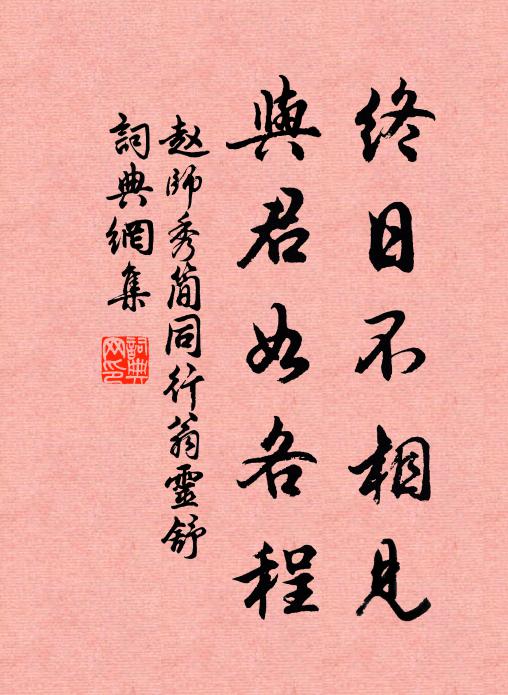 終日不相見
與君如各程
赵師秀简同行翁靈舒
詞典網集
詞典
网印